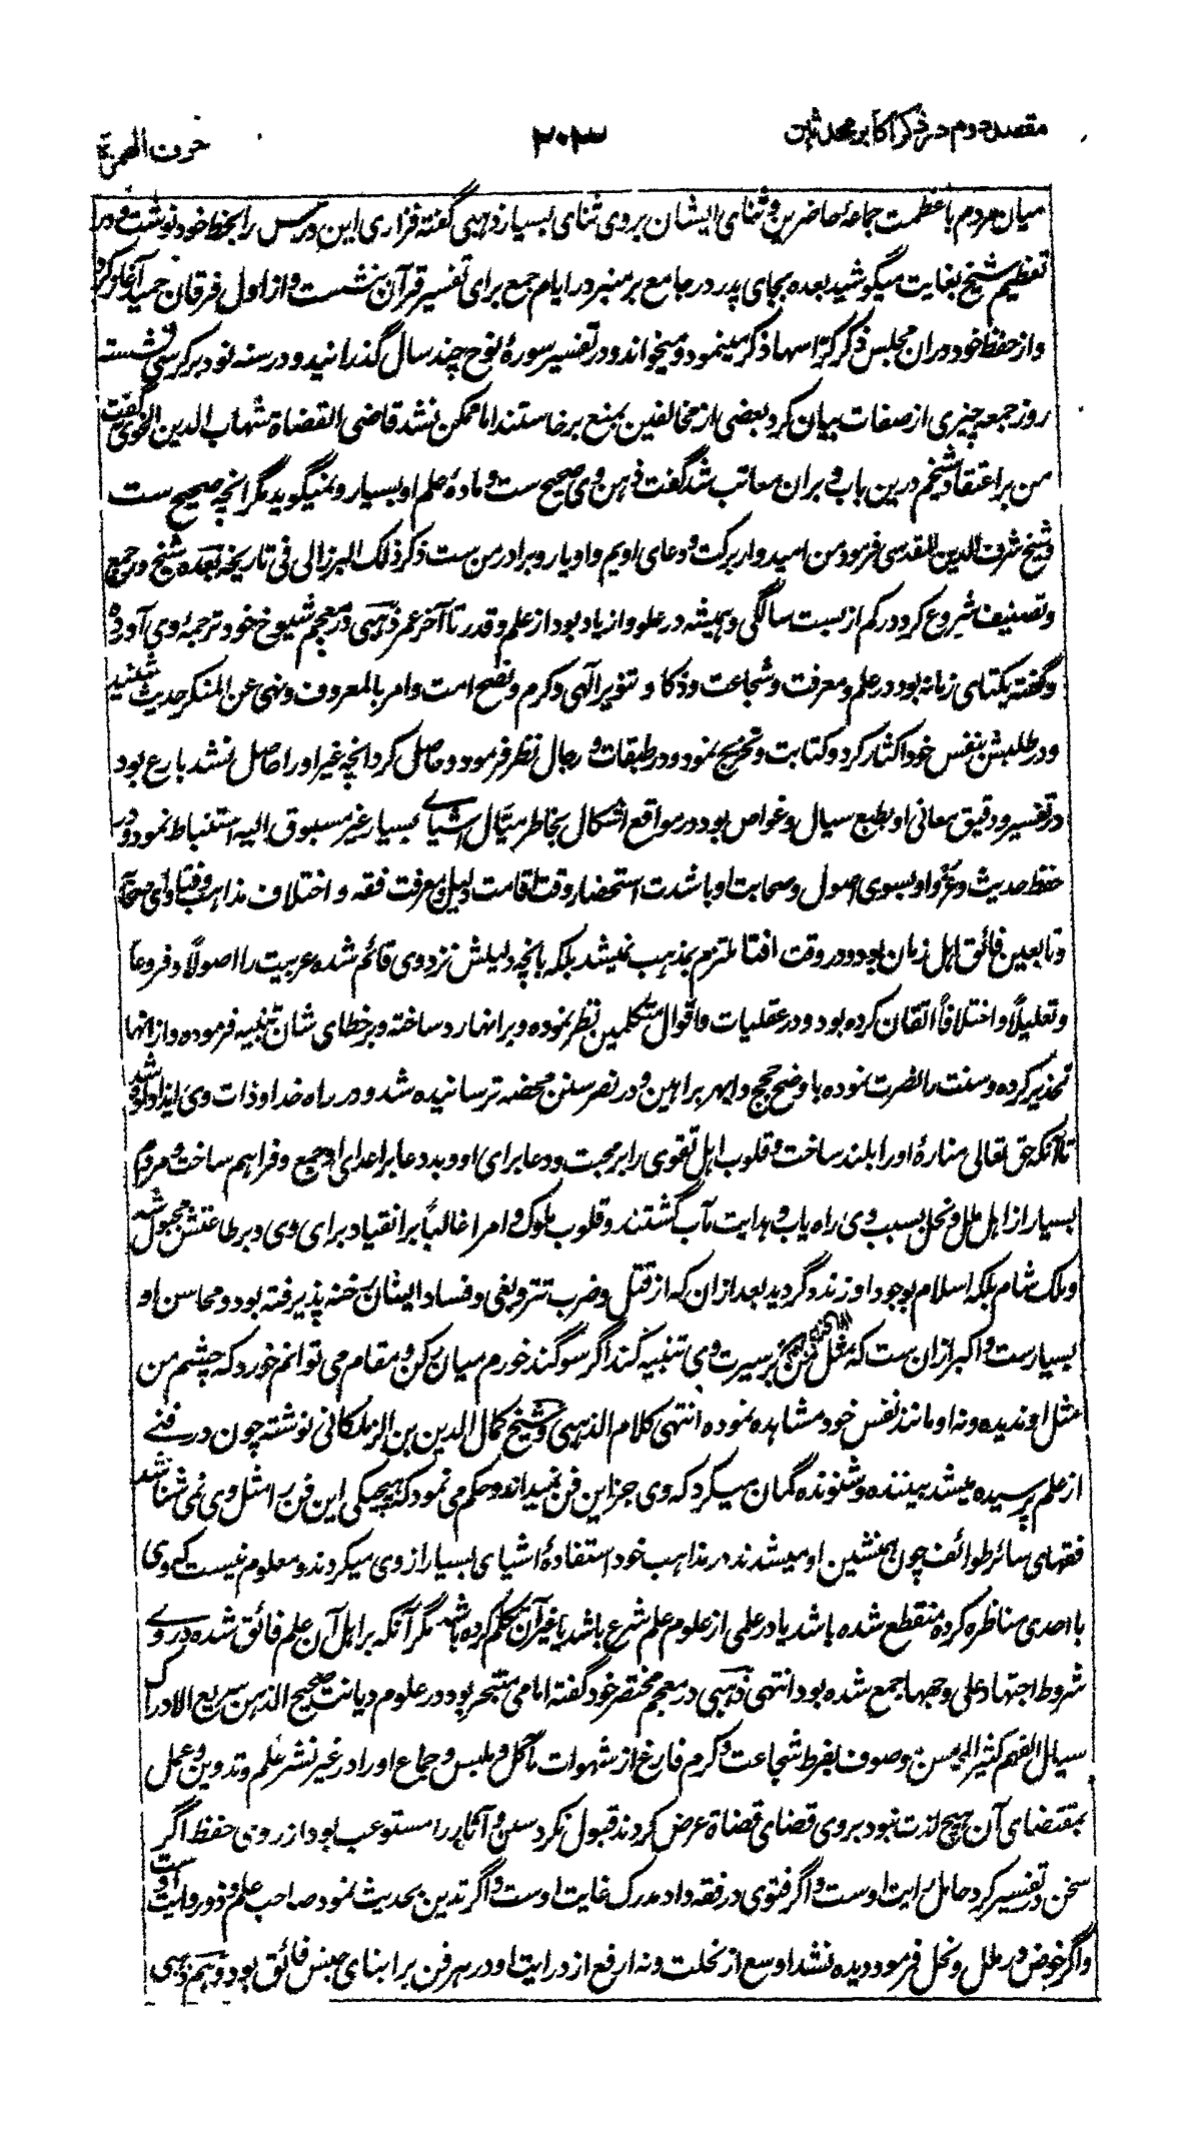 مقصد دوم در ذکر اکابر محدثان
۲۰۳
حرف الهمزة
میان مردم با عظمت جماعهٔ حاضرین و ثنای ایشان بر وی ثنای بسیار ذهبی گفته فزاری این درس را بخط خود نوشت و در
تعظیم شیخ بغایت میکوشید بعده بجای پدر در جامع بر منبر در ایام جمع برای تفسیر قرآن بنشست و از اول فرقان حمید آغاز کرد
و از حفظ خود دران مجلس ذکر کراسها ذکر مینمود و میخواند و در تفسیر سورهٔ نوح چند سال گذرانید و در سنه نود بر کرسی نشسته
روز جمعه چیزی از صفات بیان کرد بعضی از مخالفین بمنع برخاستند اما ممکن نشد قاضی القضاة شهاب الدین الخوی گفت
من بر اعتقاد شیخم درین باب و بران معاتب شد گفت ذهن وی صحیح ست و مادهٔ علم او بسیار و نمیگوید مگر انچه صحیح ست
و شیخ شرف الدین المقدسی فرمود من امیدوار برکت و دعای اویم و او یار و برادر من ست ذکر ذلک البرزالی فی تاریخه بعده شیخ در جمع
و تصنیف شروع کرد در کم از بست سالگی و همیشه در علو و ازیاد بود از علم و قدر تا آخر عمر ذهبی در معجم شیوخ خود ترجمهٔ وی آورده
و گفته یکتای زمانه بود در علم و معرفت و شجاعت و ذکا و تنویر الٓهی و کرم و نصح امت و امر بالمعروف و نهی عن المنکر حدیث شنید
و در طلبش بنفس خود اکثار کرد و کتابت و تخریج نمود و در طبقات و رجال نظر فرمود و حاصل کرد انچه غیر او را حاصل نشد بارع بود
در تفسیر و دقیق معانی او بطبع سیال و غواص بود در مواقع اشکال بخاطر میّال اشیاے بسیار غیر مسبوق الیه استنباط نمود و در
حفظ حدیث و عزو او بسوی اصول و صحابت او با شدت استحضار وقت اقامت دلیل و معرفت فقه و اختلاف مذاهب و فتاوای صحابه
و تابعین فائق اهل زمان بود و در وقت افتا ملتزم بمذهب نمیشد بلکه بانچه دلیلش نزد وی قائم شده عربیت را اصولاً و فروعاً
و تعلیلاً و اختلافاً اتقان کرده بود و در عقلیات و اقوال متکلمین نظر نموده و برانها رد ساخته و بر خطای شان تنبیه فرموده و از انها
تحذیر کرده و سنت را نصرت نموده باوضح حجج و ابهر براهین و در نصر سنن محضه ترسانیده شد و در راه خدا و ذات وی ایذا داده شد
تا آنکه حق تعالی منارهٔ او را بلند ساخت و قلوب اهل تقوی را بر محبت و دعا برای او و بد دعا بر اعدای او جمع و فراهم ساخت و مردم
بسیار از اهل ملل و نحل بسبب وی راه یاب و هدایت مآب گشتند و قلوب ملوک و امرا غالباً بر انقیاد برای وی و بر طاعتش مجبول شد
و ملک شام بلکه اسلام بوجود او زنده گردید بعد ازان که از قتل و ضرب تتر و بغی و فساد ایشان رخنه پذیرفته بود و محاسن او
بسیارست و اکبر ازان ست که مثل من بر سیرت وی تنبیه کند اگر سوگند خورم میان رکن و مقام می توانم خورد که چشم من
مثل او ندیده و نه او مانند نفس خود مشاهده نموده انتهی کلام الذهبی و شیخ کمال الدین بن الزملکانی نوشته چون در فنے
از علم پرسیده میشد بیننده و شنونده گمان میکرد که وی جز این فن نمیداند و حکم می نمود که هیچیکی این فن را مثل وی نمی شناسد
فقهای سائر طوائف چون همنشین او میشدند در مذاهب خود استفادهٔ اشیای بسیار از وی میکردند و معلوم نیست که وی
با احدی مناظره کرده منقطع شده باشد یا در علمی از علوم علم شرع باشد یا غیر آن تکلم کرده باشد مگر آنکه بر اهل آن علم فائق شده در وے
شروط اجتهاد علی وجهها جمع شده بود انتهی ذهبی در معجم مختصر خود گفته امامی متبحر بود در علوم دیانت صحیح الذهن سریع الادراک
سیال الفهم کثیر المحاسن موصوف بفرط شجاعت و کرم فارغ از شهوات ماکل و ملبس و جماع او را در غیر نشر علم و تدوین و عمل
بمقتضای آن هیچ لذت نبود بر وی قضای قضاة عرض کردند قبول نکرد سنن و آثار را مستوعب بود از روی حفظ اگر
سخن در تفسیر کرد حامل رایت اوست و اگر فتوی در فقه داد مدرک غایت اوست و اگر تدین بحدیث نمود صاحب علم و ذو روایت اوست
و اگر خوض در ملل و نحل فرمود دیده نشد اوسع از نحلت و نه ارفع از درایت او در هر فن بر ابنای جنس فائق بود و هم ذهبی